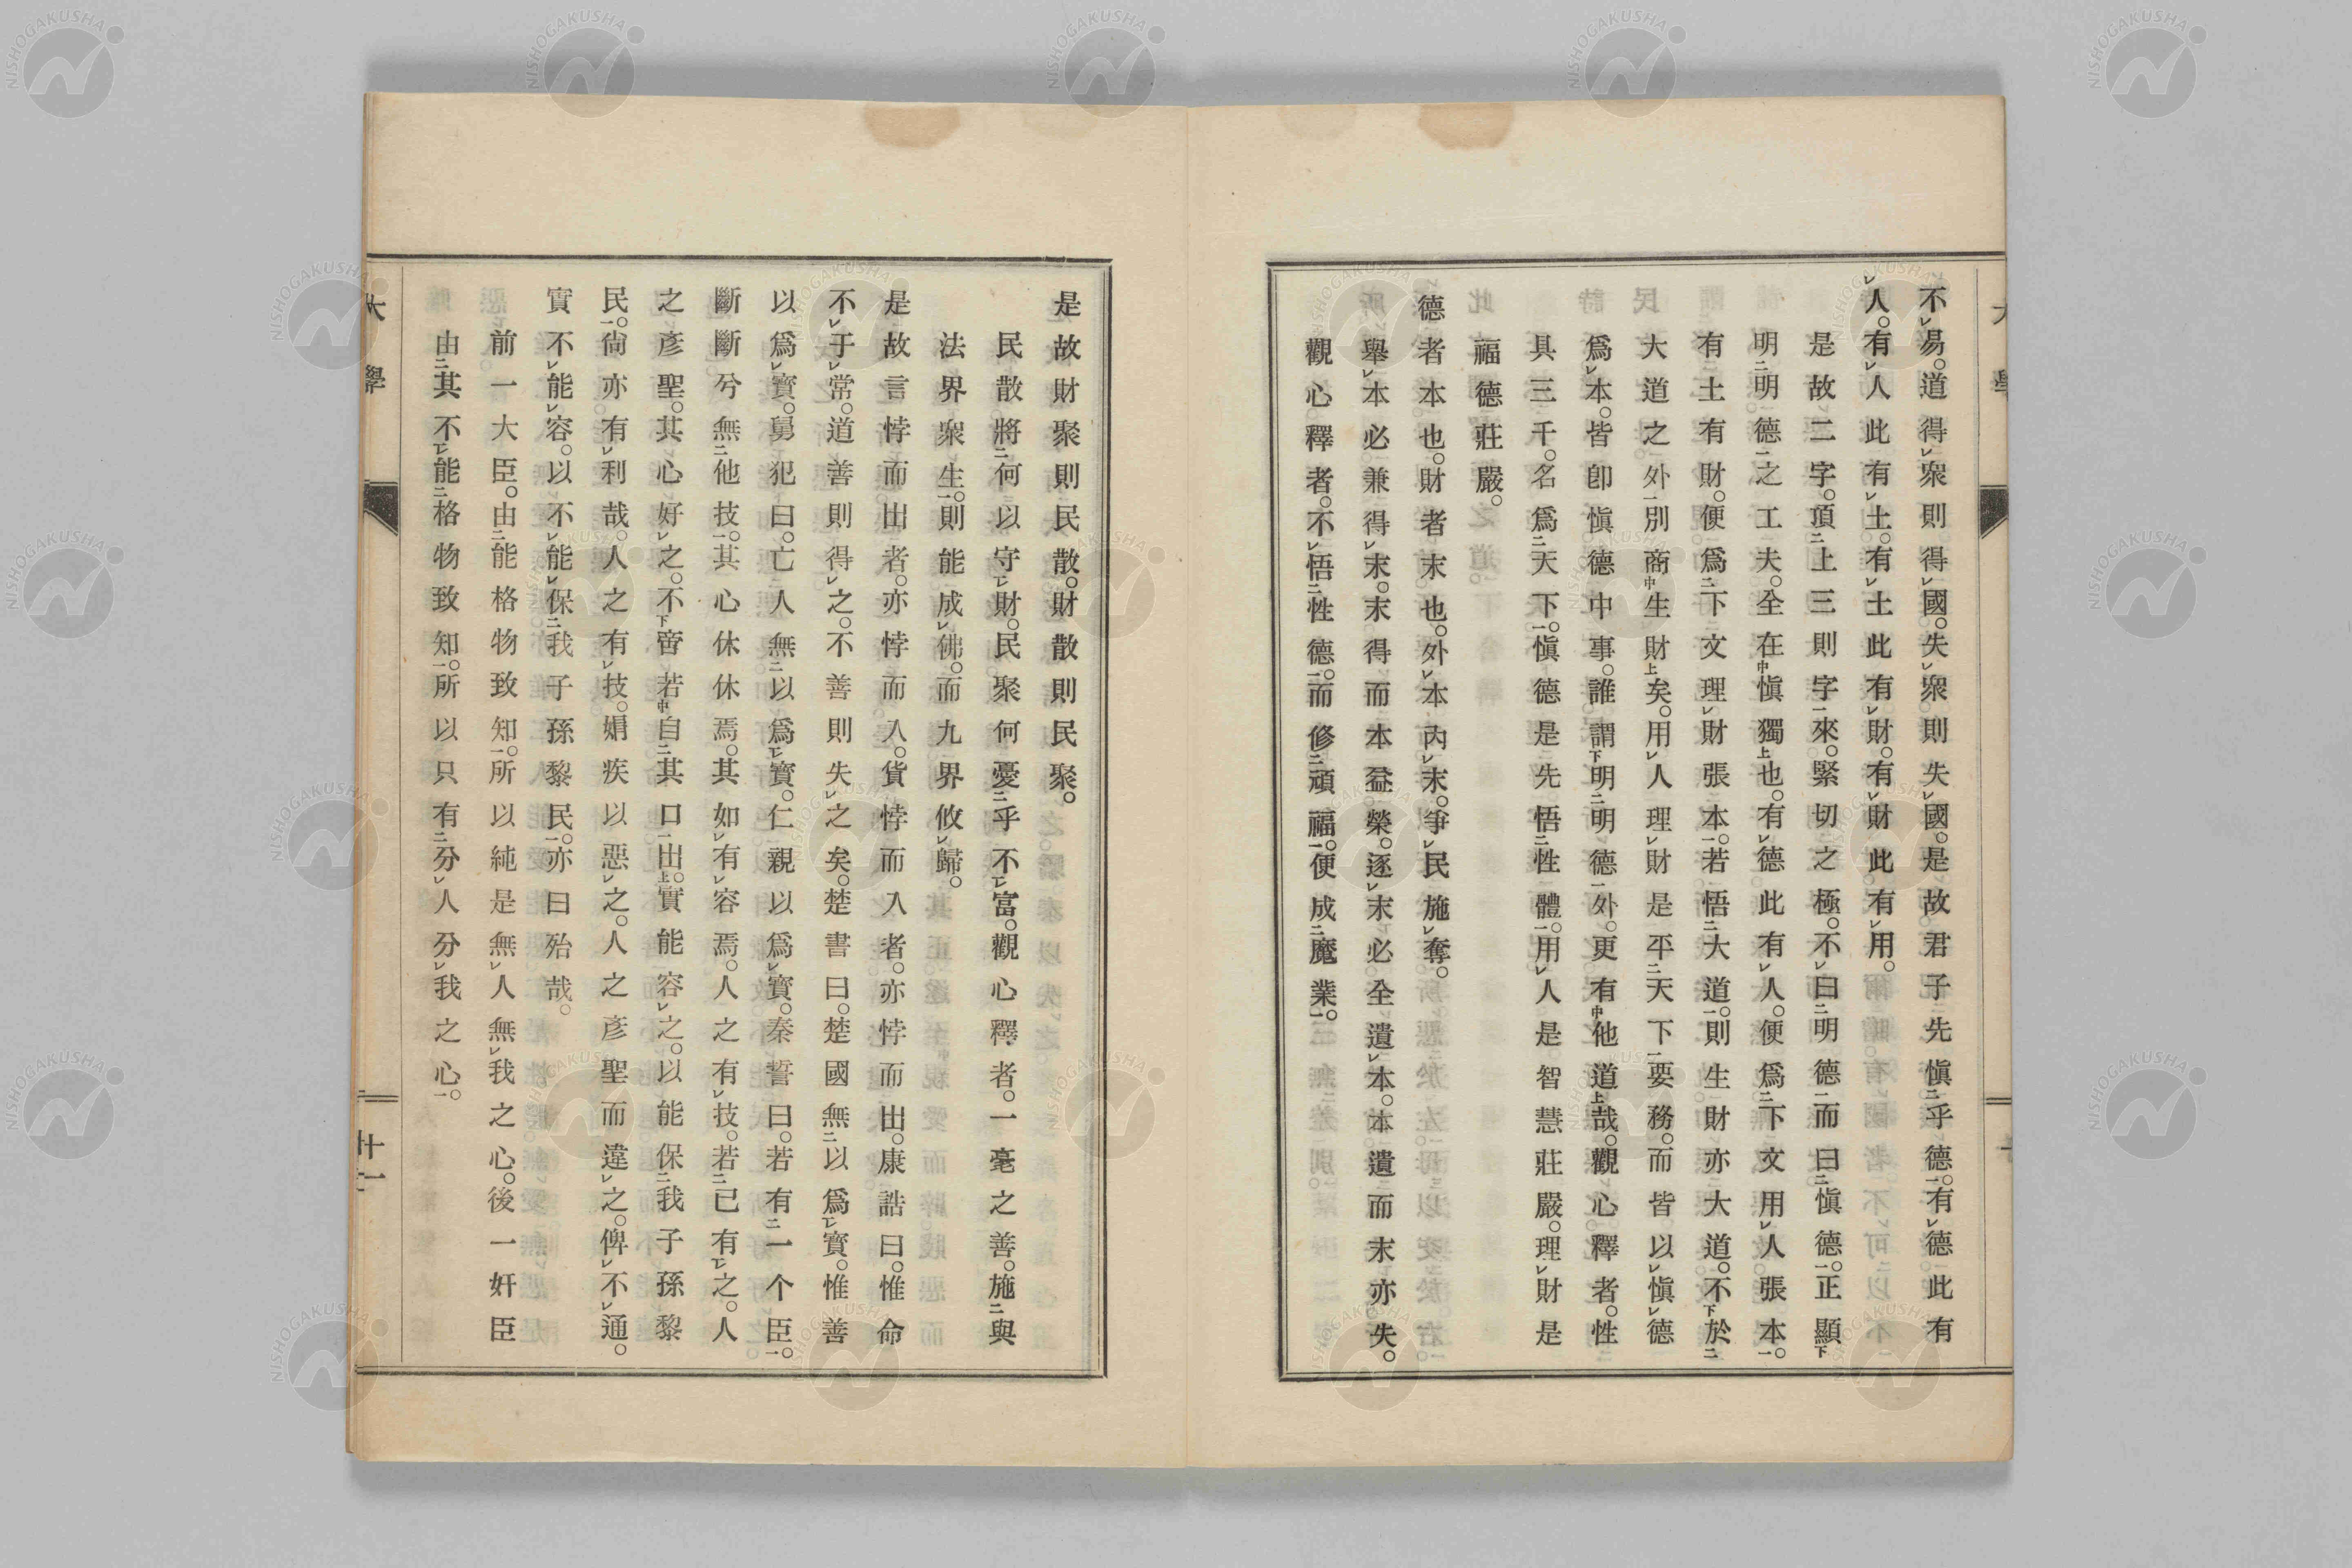 不易。道得衆則得國。失衆則失國。是故君子先愼乎德。有德此有
人。有人此有土。有土此有財。有財此有用。
是故二字。頂上三則字來。緊切之極。不曰明德而曰愼德。正顯
明明德之工夫。全在愼獨也。有德此有人。便爲下文用人張本。
有土有財。便爲下文理財張本。若悟大道。則生財亦大道。不於
大道之外別商生財矣。用人理財是平天下要務。而皆以愼德
爲本。皆卽愼德中事。誰謂明明德外。更有他道哉。觀心釋者。性
具三千。名爲天下。愼德是先悟性體。用人是智慧莊嚴。理財是
福德莊嚴。
德者本也。財者末也。外本內末。爭民施奪。
舉本必兼得末。末得而本益榮。逐末必全遺本。本遺而末亦失。
觀心釋者。不悟性德。而修頑福。便成魔業。
是故財聚則民散。財散則民聚。
民散將何以守財。民聚何憂乎不富。觀心釋者。一毫之善。施與
法界衆生。則能成佛。而九界攸歸。
是故言悖而出者。亦悖而入。貨悖而入者。亦悖而出。康誥曰。惟命
不于常。道善則得之。不善則失之矣。楚書曰。楚國無以爲寶。惟善
以爲寶。舅犯曰。亡人無以爲寶。仁親以爲寶。秦誓曰。若有一个臣。
斷斷兮無他技。其心休休焉。其如有容焉。人之有技。若已有之。人
之彥聖。其心好之。不啻若自其口出。實能容之。以能保我子孫黎
民。尙亦有利哉。人之有技。媢疾以惡之。人之彥聖而違之。俾不通。
實不能容。以不能保我子孫黎民。亦曰殆哉。
前一大臣。由能格物致知。所以純是無人無我之心。後一奸臣
由其不能格物致知。所以只有分人分我之心。
大學
廿一
NISHOGAKUSHA